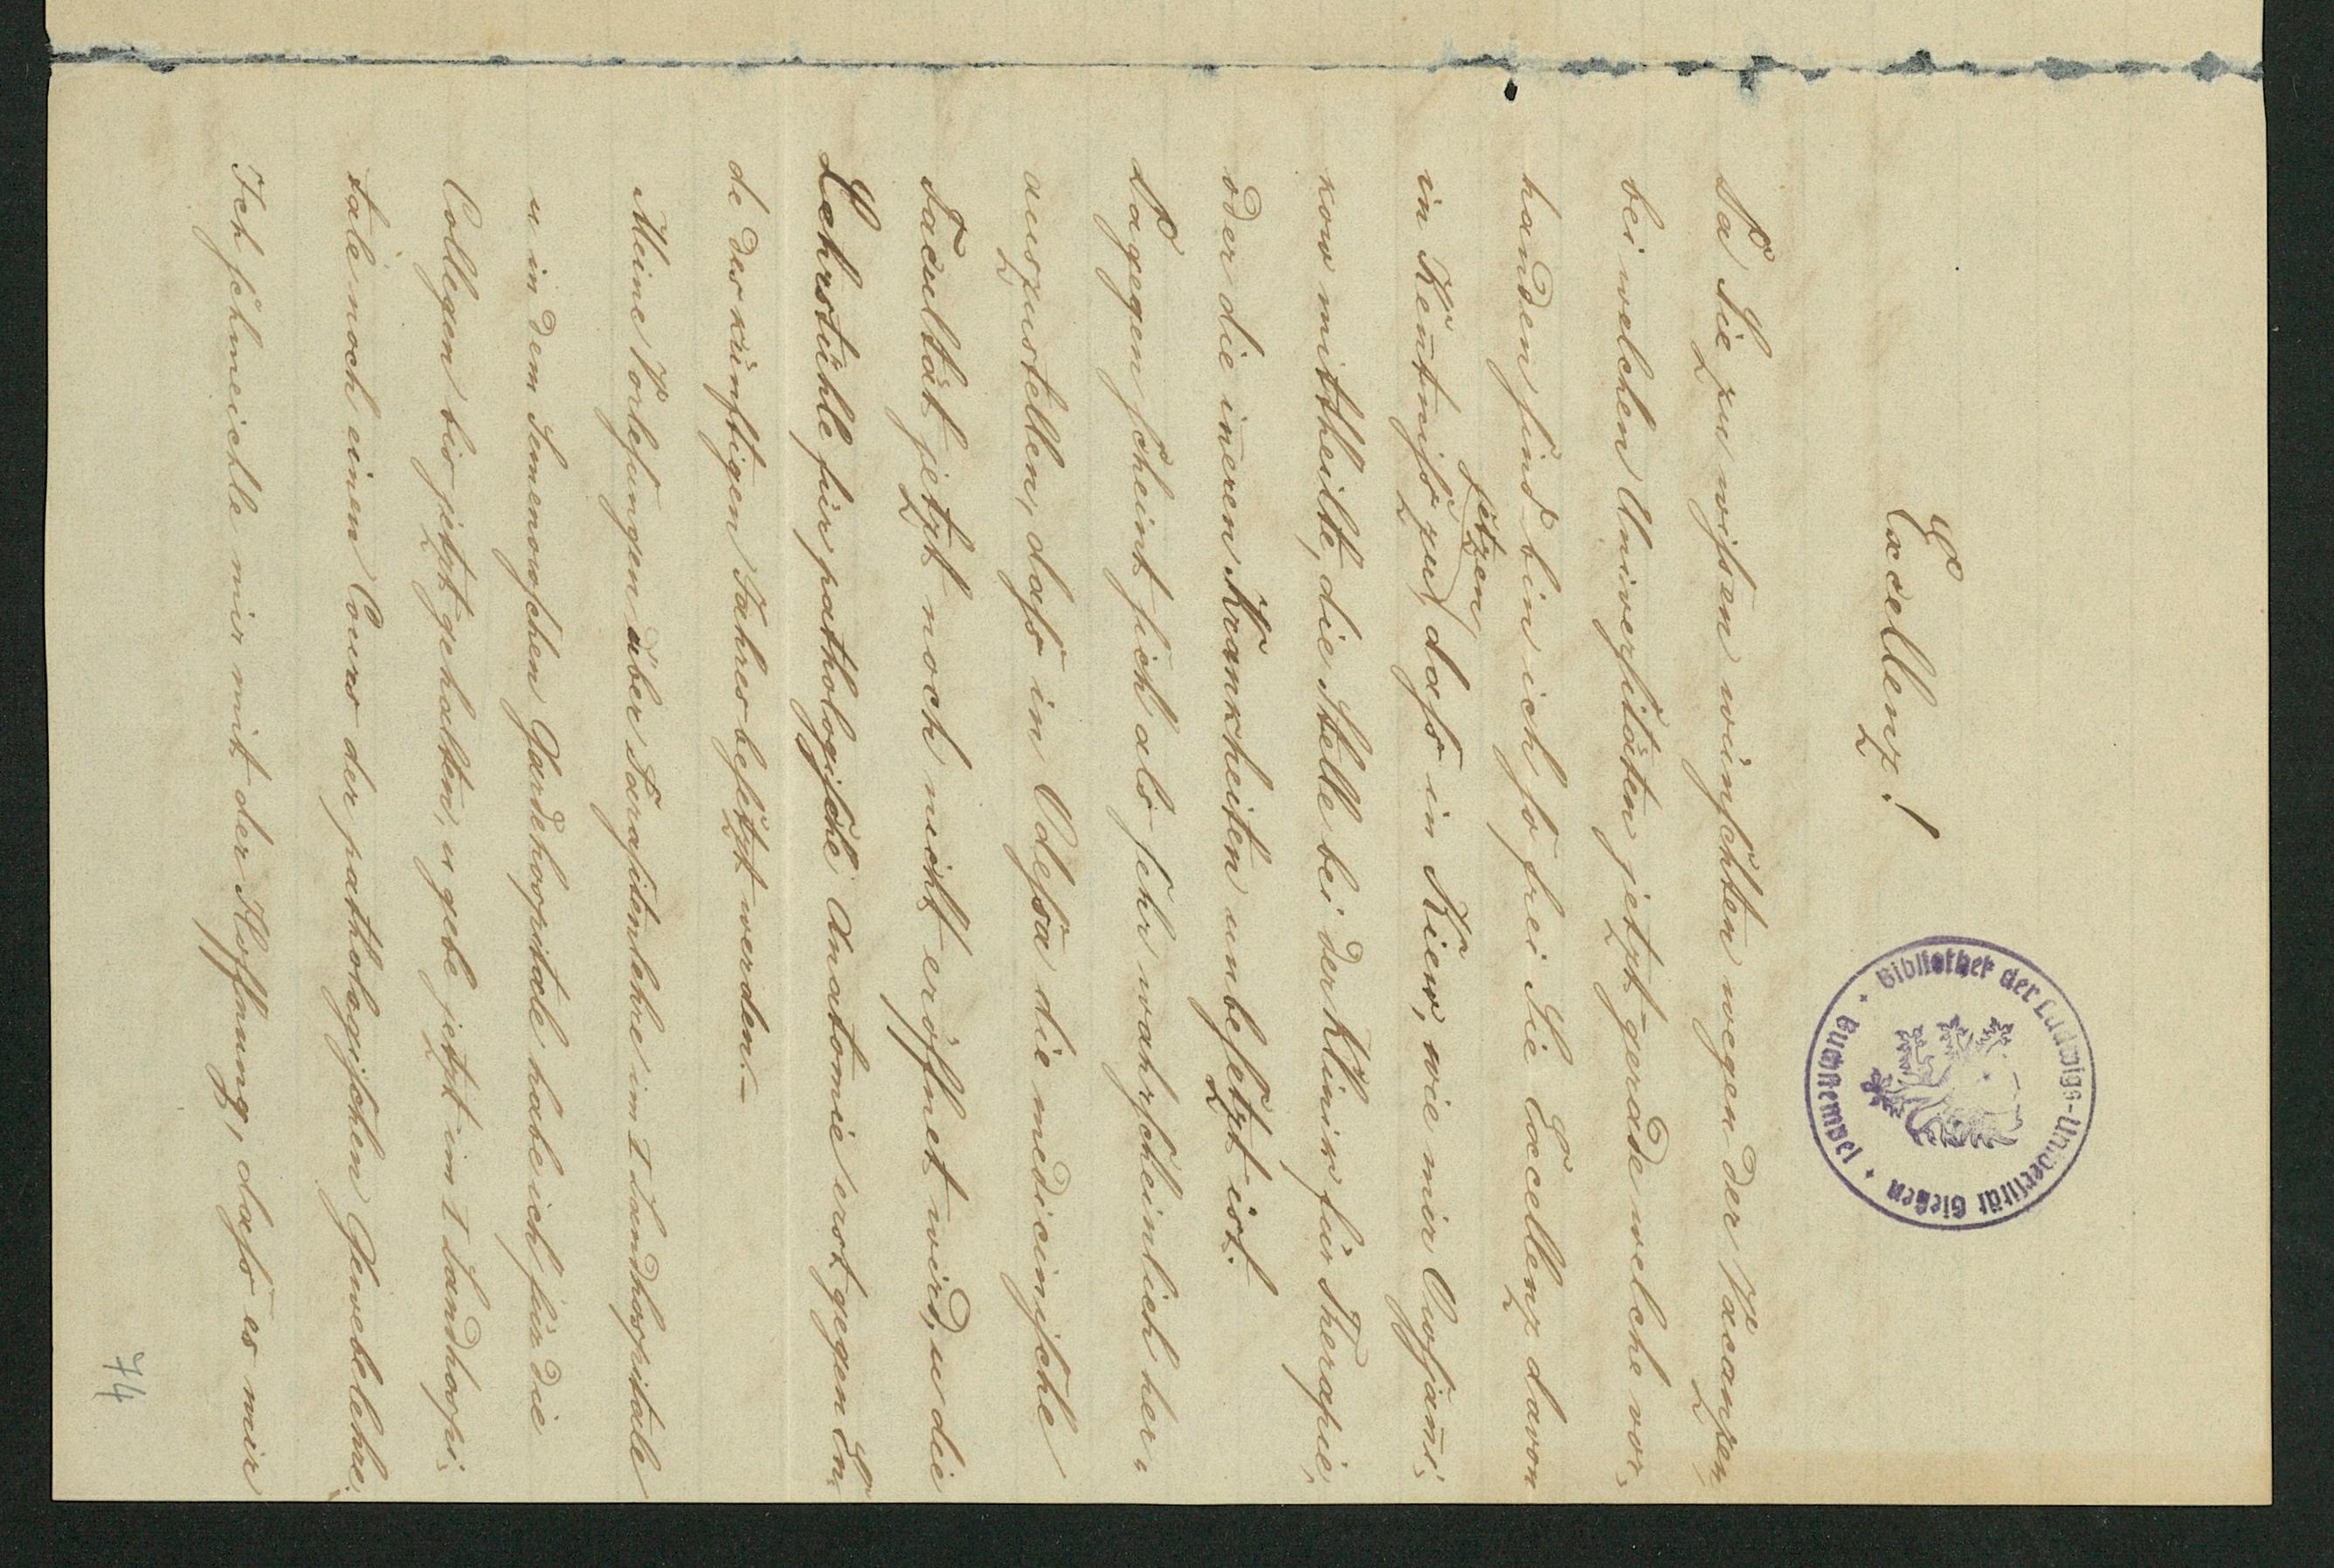 Excellenz!
Bibliothek der Ludwigs-Universität Gießen • Buchstempel •
Da Sie zu wißen wünschten wegen der Vacanzen,
bei welchen Universitäten jetzt gerade welche vor-
handen sind bin ich so frei Sie Excellenz davon
in Kentniß zu setzen, daß in Kiew, wie mir
kow mittheilte, die Stelle bei der Klinik für Therapie,
oder die ineren Krankheiten unbesetzt ist.
Dagegen scheint sich als sehr wahrscheinlich her-
auszustellen, daß in Odeßa die medicinische
Facultät jetzt noch nicht eröffnet wird, u die
Lehrstühle für pathologische Anatomie erst gegen En-
de des künftigen Jahres besetzt werden.–
Meine Vorlesungen über Parasitenlehre im I Landhospitale
u in dem Semenowschen Gardehospitale habe ich für die
Collegen bis jetzt gehalten, u gebe jetzt im I Landhospi-
tale noch einen Cours der pathologischen Gewebelehre.
Ich schmeichle mir mit der Hoffnung, daß es mir
74